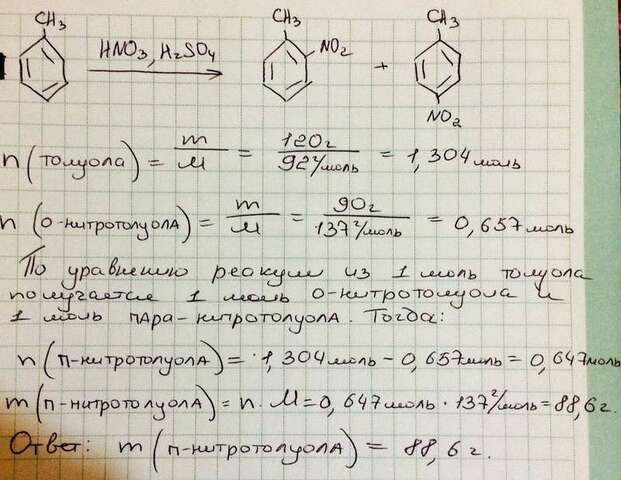 CH3 CH3 CH3
HNO3, H2SO4 NO2 +
NO2
n(толуола) = m/M = 120г/92г/моль = 1,304моль
n(о-нитротолуола) = m/M = 90г/137г/моль = 0,657моль
По уравнению реакции из 1 моль толуола
получается 1 моль о-нитротолуола и
1 моль пара-нитротолуола. Тогда:
n(п-нитротолуола) = 1,304моль - 0,657моль = 0,647моль
m(п-нитротолуола) = n · M = 0,647моль · 137г/моль = 88,6г.
Ответ: m(п-нитротолуола) = 88,6г.